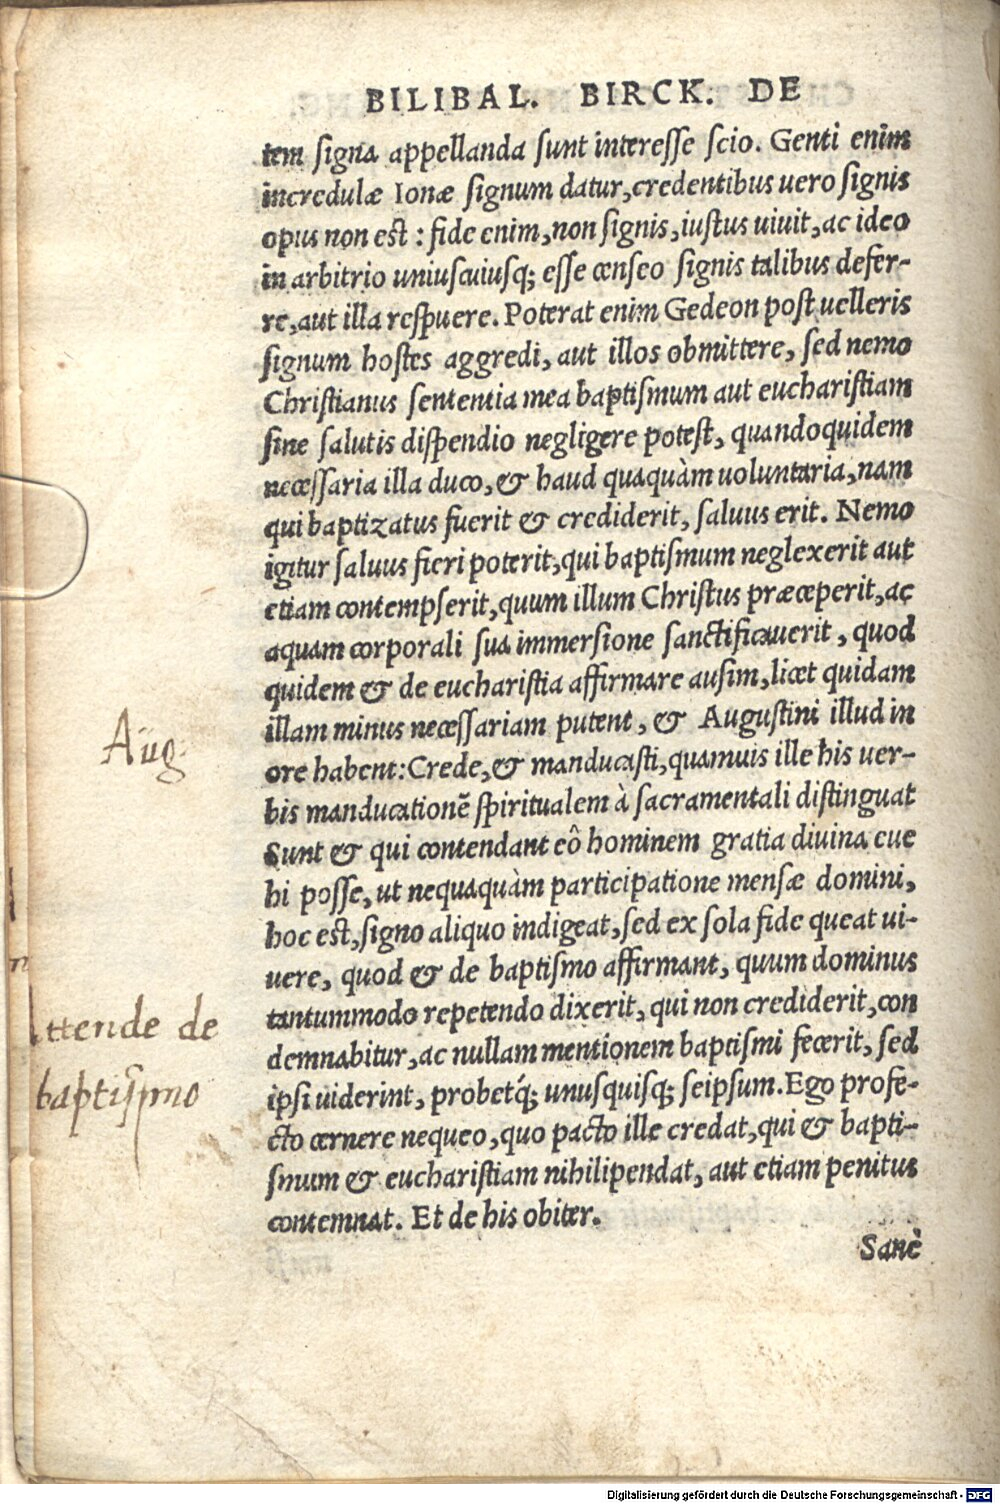 BILIBAL. BIRCK. DE
tem signa appellanda sunt interesse scio. Genti enim
incredulæ Ionæ signum datur, credentibus uero signis
opus non est : fide enim, non signis, iustus uiuit, ac ideo
in arbitrio uniuscuiusq; esse censeo signis talibus defer-
re, aut illa respuere. Poterat enim Gedeon post uelleris
signum hostes aggredi, aut illos obmittere, sed nemo
Christianus sententia mea baptismum aut eucharistiam
sine salutis dispendio negligere potest, quandoquidem
necessaria illa duco, & haud quaquàm uoluntaria, nam
qui baptizatus fuerit & crediderit, saluus erit. Nemo
igitur saluus fieri poterit, qui baptismum neglexerit aut
etiam contempserit, quum illum Christus præceperit, ac
aquam corporali sua immersione sanctificauerit, quod
quidem & de eucharistia affirmare ausim, licet quidam
illam minus necessariam putent, & Augustini illud in
Aug:
ore habent: Crede, & manducasti, quamuis ille his uer-
bis manducationē spiritualem à sacramentali distinguat
Sunt & qui contendant eô hominem gratia diuina eue
hi posse, ut nequaquàm participatione mensæ domini,
hoc est, signo aliquo indigeat, sed ex sola fide queat ui-
uere, quod & de baptismo affirmant, quum dominus
tantummodo repetendo dixerit, qui non crediderit, con
ttende de
demnabitur, ac nullam mentionem baptismi fecerit, sed
baptismo
ipsi uiderint, probetq́; unusquisq; seipsum. Ego profe-
cto cernere nequeo, quo pacto ille credat, qui & bapti-
smum & eucharistiam nihilipendat, aut etiam penitus
contemnat. Et de his obiter.
Sanè
Digitalisierung gefördert durch die Deutsche Forschungsgemeinschaft - DFG